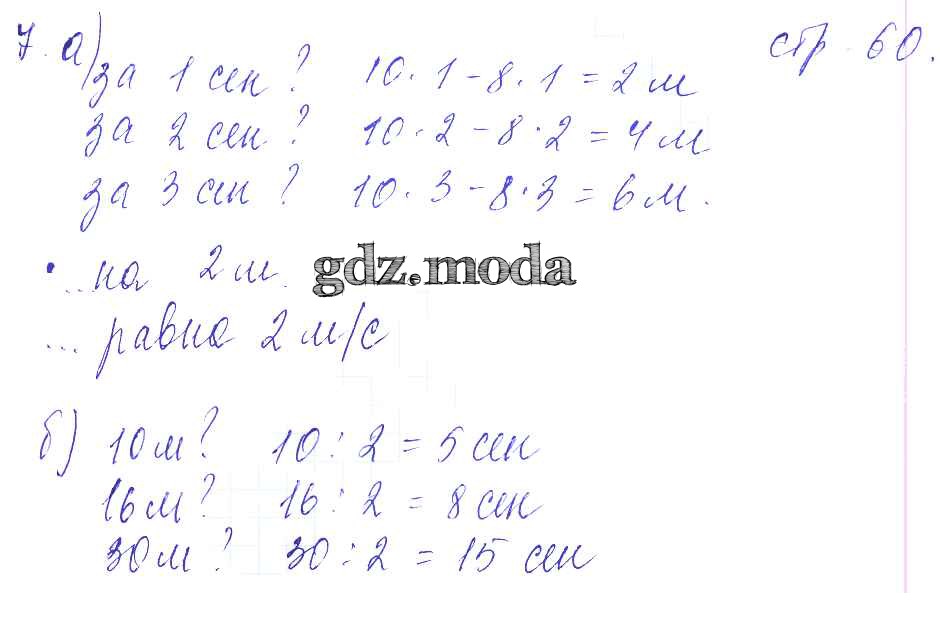 7. а)
стр. 60.
за 1 сек ? 10 · 1 - 8 · 1 = 2 м
за 2 сек ? 10 · 2 - 8 · 2 = 4 м
за 3 сек ? 10 · 3 - 8 · 3 = 6 м.
... на 2 м.
gdz.moda
... равна 2 м/с
б) 10 м ? 10 : 2 = 5 сек
16 м ? 16 : 2 = 8 сек
30 м ? 30 : 2 = 15 сек